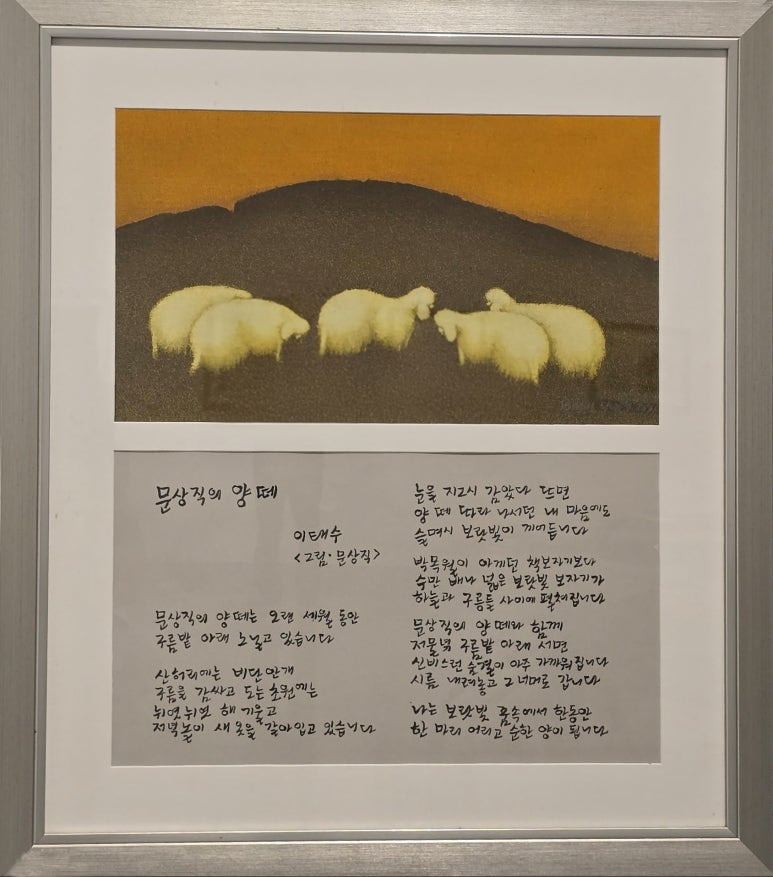 문상직의 양떼
이태수
<그림·문상직>
문상직의 양떼는 오랜 세월 동안
구름밭 아래 노닐고 있습니다
산허리에는 비단안개
구름을 감싸고 도는 초원에는
뉘엿뉘엿 해 기울고
저녁놀이 새 옷을 갈아입고 있습니다
눈을 지그시 감았다 뜨면
양떼 따라 나서던 내 마음에도
슬며시 보랏빛이 끼어듭니다
박목월이 아끼던 책보자기보다
수만 배나 넓은 보랏빛 보자기가
하늘과 구름들 사이에 펼쳐집니다
문상직의 양떼와 함께
저물녘 구름밭 아래 서면
신비스런 숨결이 아주 가까워집니다
시름 내려놓고 그 너머로 갑니다
나는 보랏빛 품속에서 한동안
한 마리 어리고 순한 양이 됩니다